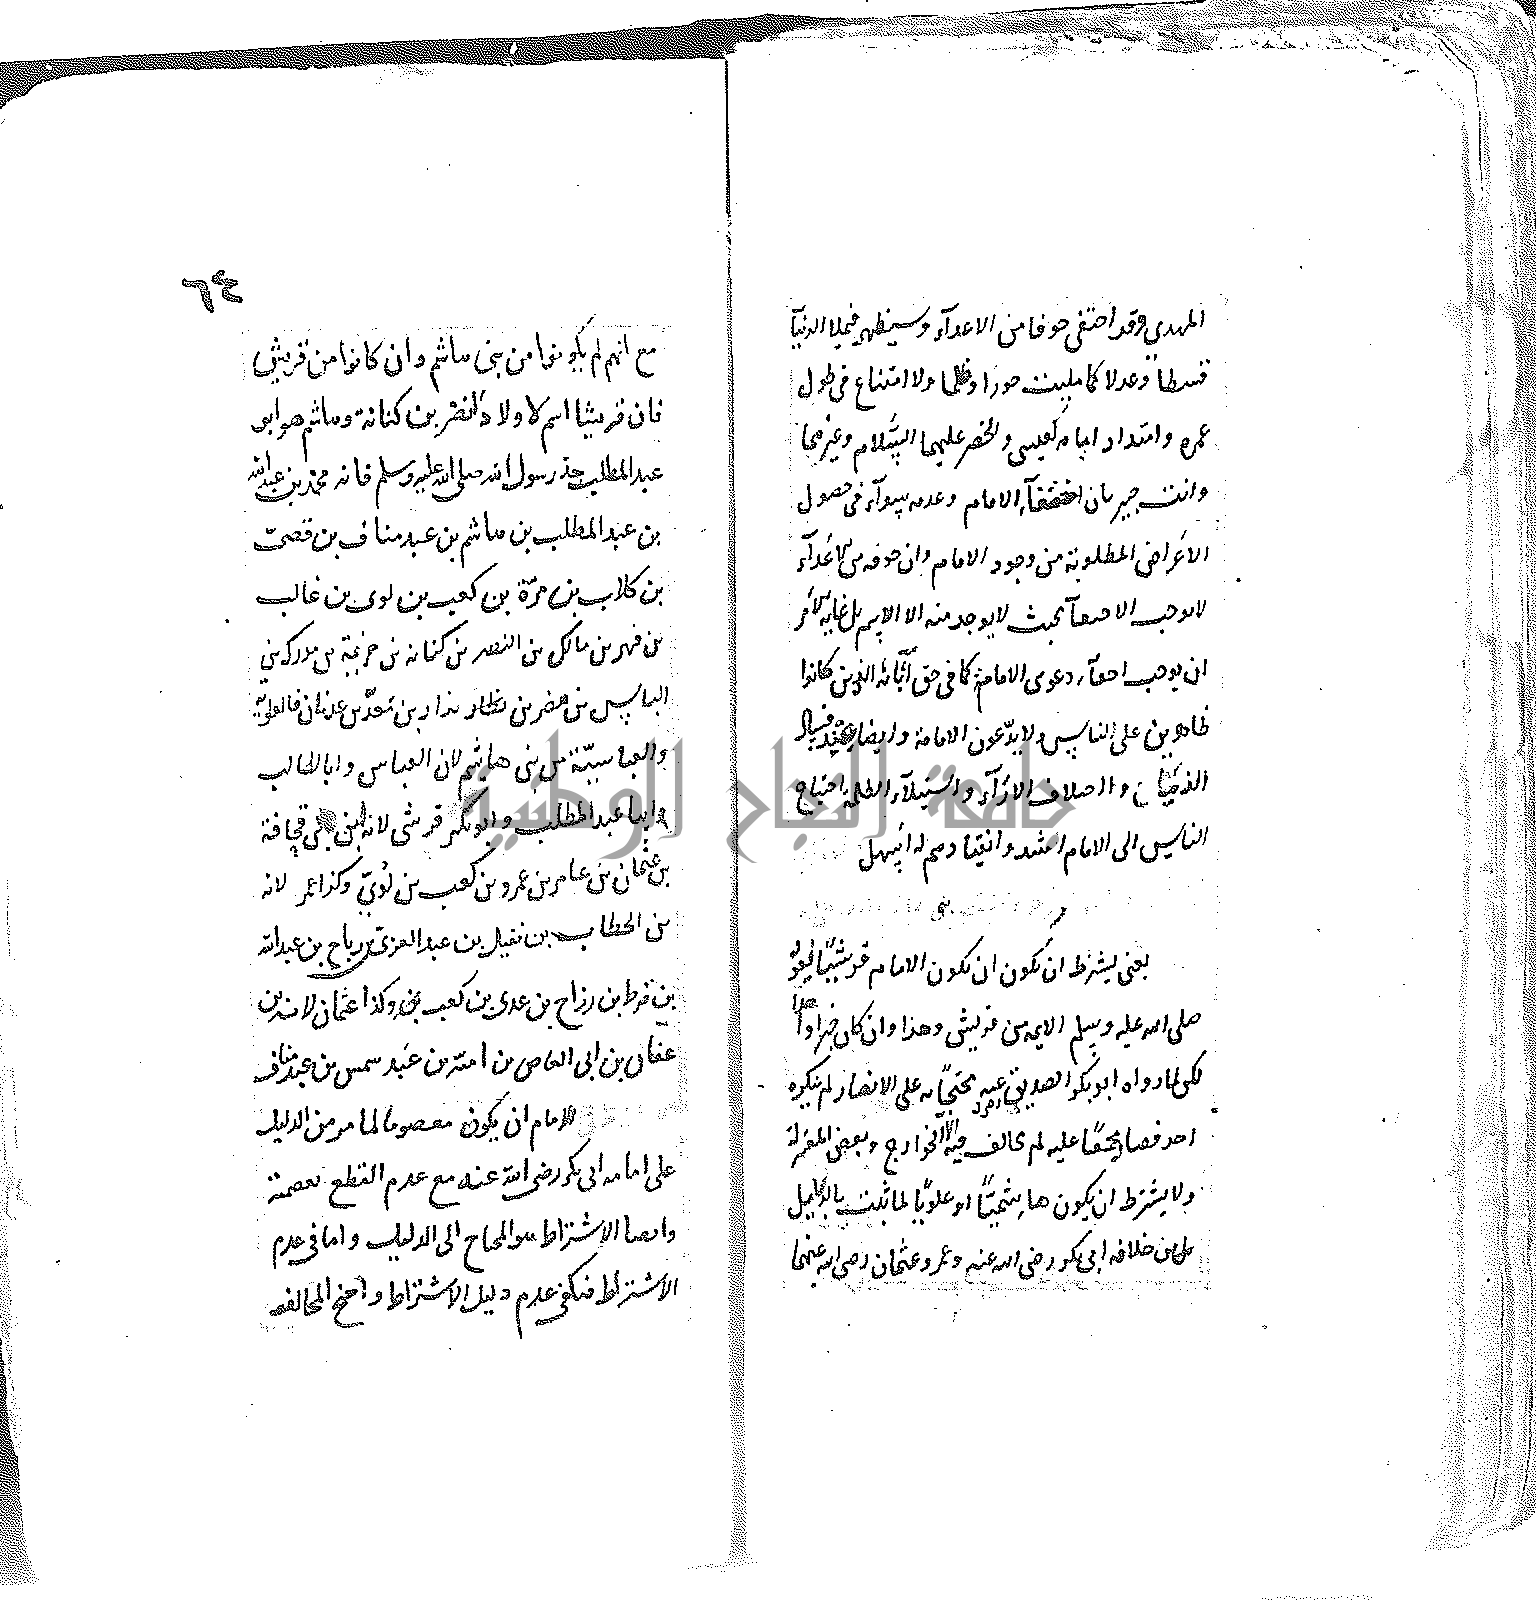 المهدي وقد اختفى خوفا من الاعدآء وسيظهر فيملا الدنيا
قسطا وعدلا كما مليت جورا وظلما ولا امتناع فى طول
عمره وامتداد ايامه كعيسى والخضر عليهما السلام وغيرهما
وانت خبير بان اختفآء الامام وعدمه سوآء فى حصول
الاغراض المطلوبة من وجود الامام وان خوفه من الاعدآء
لا يوجب الاختفآ بحيث لا يوجد منه الا الاسم بل غاية الامر
ان يوجب اخفآء دعوى الامامة كما فى حق آبائه الذين كانوا
ظاهرين على الناس ولا يدّعون الامامة وايضا فعند فساد
الزمان واختلاف الارآء واستيلآء الظلمة احتياج
الناس الى الامام اشد وانقيادهم له أسهل
يعنى يشترط ان يكون ان يكون الامام قريشيّا لقوله
صلى الله عليه وسلم الايمه من قريش وهذا وان كان خبرا واحدا
لكن لما رواه ابو بكر الصديق عنه محتجّا به على الانصار لم ينكره
احد فصار مجمعًا عليه لم يخالف فيه الا الخوارج وبعض المعتزلة
ولا يشترط ان يكون هاشميّا او علويّا لما ثبت بالدليل
من خلافة ابى بكر رضى الله عنه وعمر وعثمان رضى الله عنهما
٦٤
مع انهم لم يكونوا من بنى هاشم وان كانوا من قريش
فان قريشا اسم لاولاد النضر بن كنانة وهاشم هو ابو
عبد المطلب جد رسول الله صلى الله عليه وسلم فانه محمد بن عبد الله
بن عبد المطلب بن هاشم بن عبد مناف بن قصىّ
بن كلاب بن مرّة بن كعب بن لوى بن غالب
بن فهر بن مالك بن النضر بن كنانه بن خزيمة بن مدركة بن
الياس بن مضر بن نزار بن معدّ بن عدنان فالعلوية
والعباسيّة من بنى هاشم لان العباس وابا طالب
ابنا عبد المطلب وابو بكر قرشى لانه ابن ابى قحافة
بن عثمان بن عامر بن عمرو بن كعب بن لؤيّ وكذا عمر لانه
بن الخطاب بن نفيل بن عبد العزى بن رباح بن عبد الله
بن قرط بن رزاح بن عدى بن كعب وكذا عثمان لانه بن
عفان بن ابى العاص بن اميّة بن عبد شمس بن عبد مناف
للامام ان يكون معصوما لما مر من الدليل
على امامه ابى بكر رضى الله عنه مع عدم القطع بعصمته
وايضا الاشتراط هو المحتاج الى الدليل واما فى عدم
الاشتراط فيكفى عدم دليل الاشتراط واحتج المخالف
جامعة النجاح الوطنية